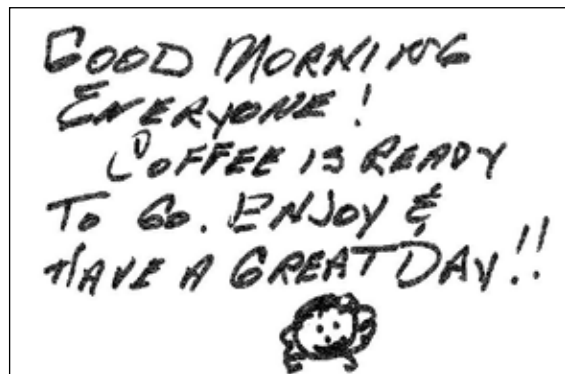 GOOD MORNING
EVERYONE!
COFFEE IS READY
TO GO. ENJOY &
HAVE A GREAT DAY!!